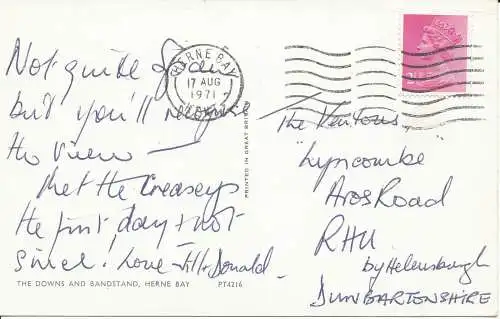 Not quite
but you'll recognise
the view —
Met the Creaseys
the first day & not
since! Love Jill & Donald
THE DOWNS AND BANDSTAND, HERNE BAY PT4216
PRINTED IN GREAT BRITAIN
HERNE BAY
17 AUG
1971
The
"Lyncombe"
Aros Road
RHU
by Helensburgh
DUNBARTONSHIRE